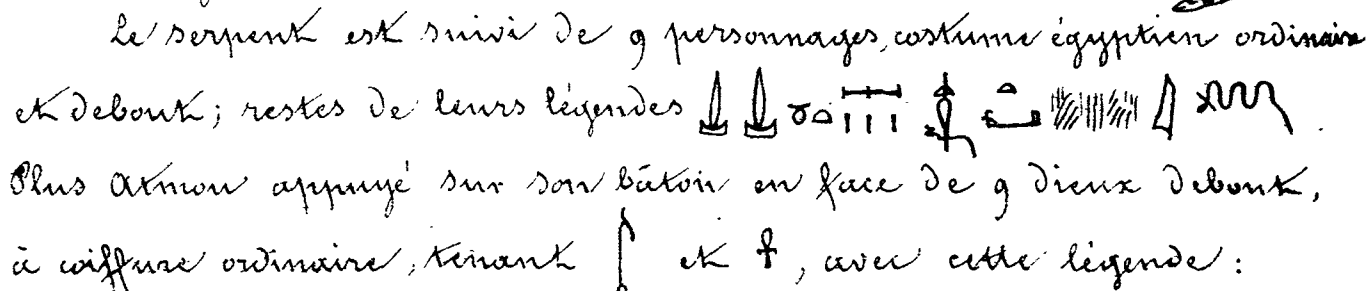 Le serpent est suivi de 9 personnages, costume égyptien ordinaire
et debout; restes de leurs légendes
Plus Atmou appuyé sur son bâton en face de 9 dieux debout,
à coiffure ordinaire, tenant et 𓋹, avec cette légende: